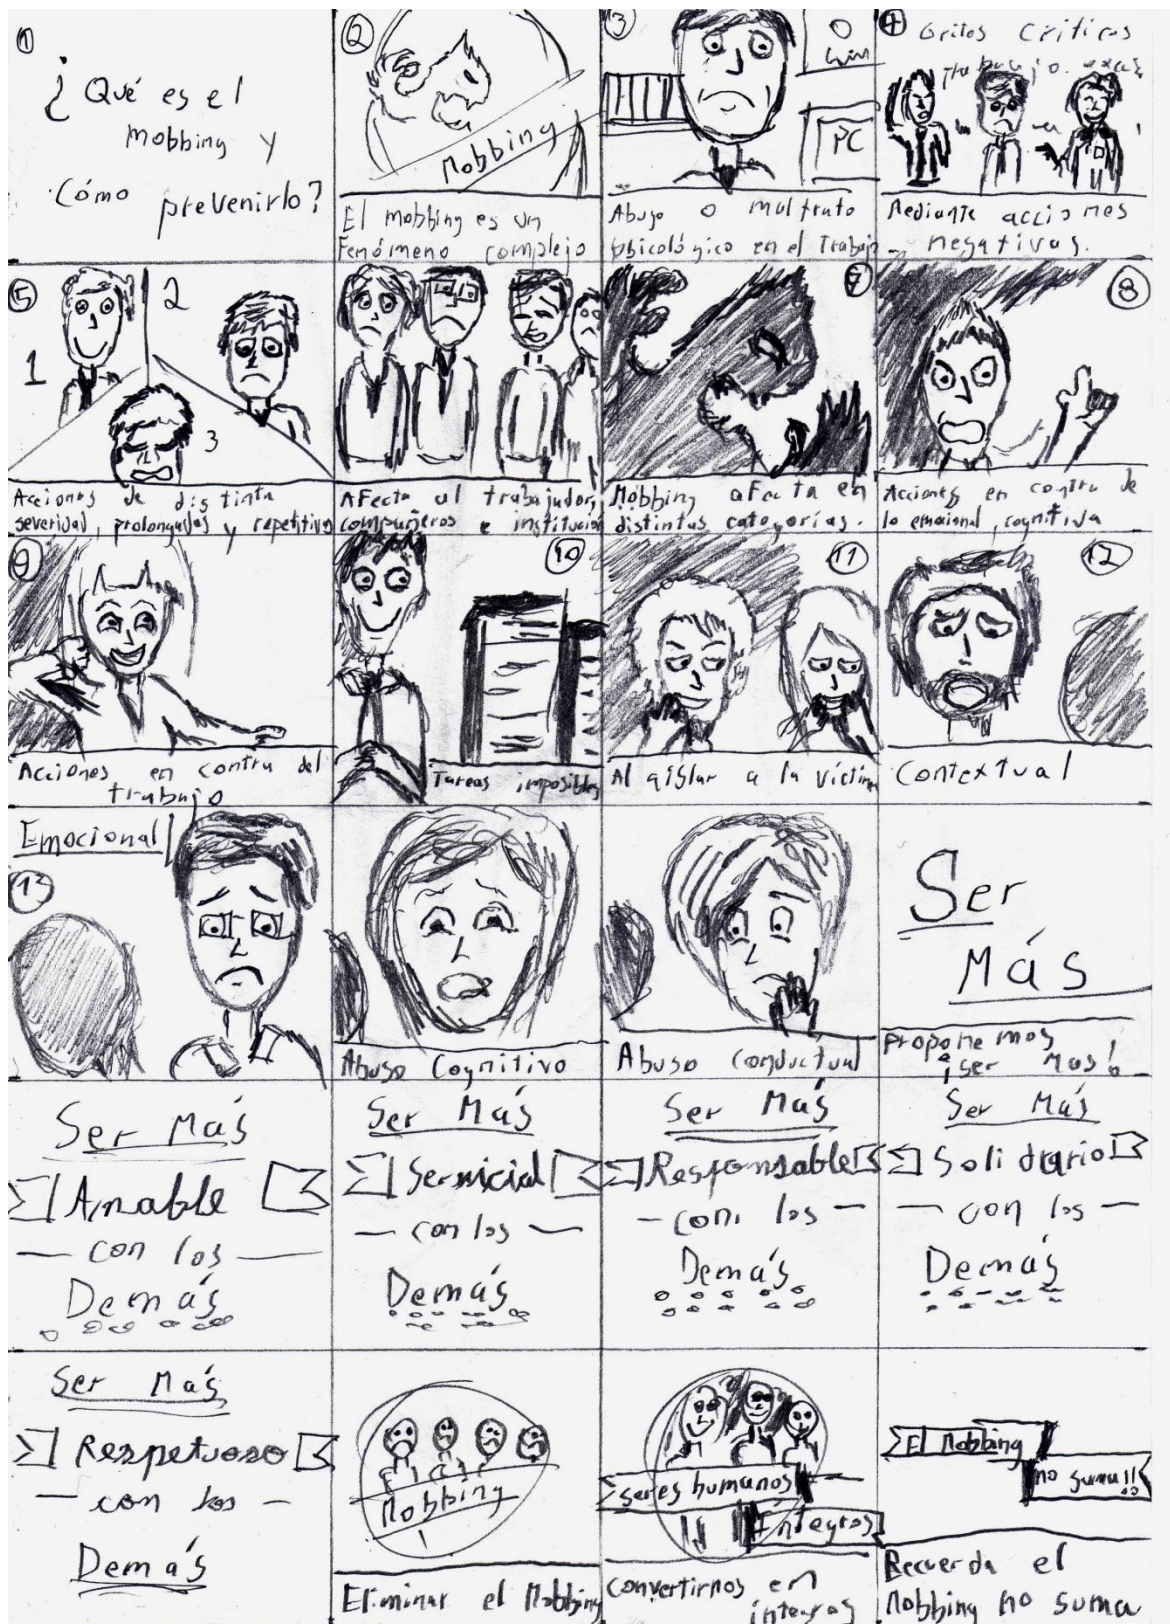 1
¿Qué es el
mobbing y
Cómo prevenirlo?
2
Mobbing
El mobbing es un
Fenómeno complejo
3
PC
Abuso o maltrato
psicológico en el Trabajo
4
Gritos Críticas
Trabajo. exas
Mediante acciones
negativas.
5
1
2
3
Acciones de distinta
severidad, prolongadas y repetitivas
Afecta al trabajador,
compañeros e institución
7
Mobbing afecta en
distintas categorías.
8
Acciones en contra de
lo emocional, cognitiva
9
Acciones en contra del
trabajo
10
Tareas imposibles
11
Al aislar a la víctima
12
Contextual
Emocional
13
Abuso Cognitivo
Abuso conductual
Ser
Más
Proponemos
¡ser Mas!
Ser Más
Amable
con los
Demás
Ser Más
Servicial
con los
Demás
Ser Más
Responsable
con los
Demás
Ser Más
Solidrario
con los
Demás
Ser Más
Respetuoso
con los
Demás
Mobbing
Eliminar el Mobbing
seres humanos
Íntegros
Convertirnos en
integros
El Mobbing
no suma!!
Recuerda el
Mobbing no suma